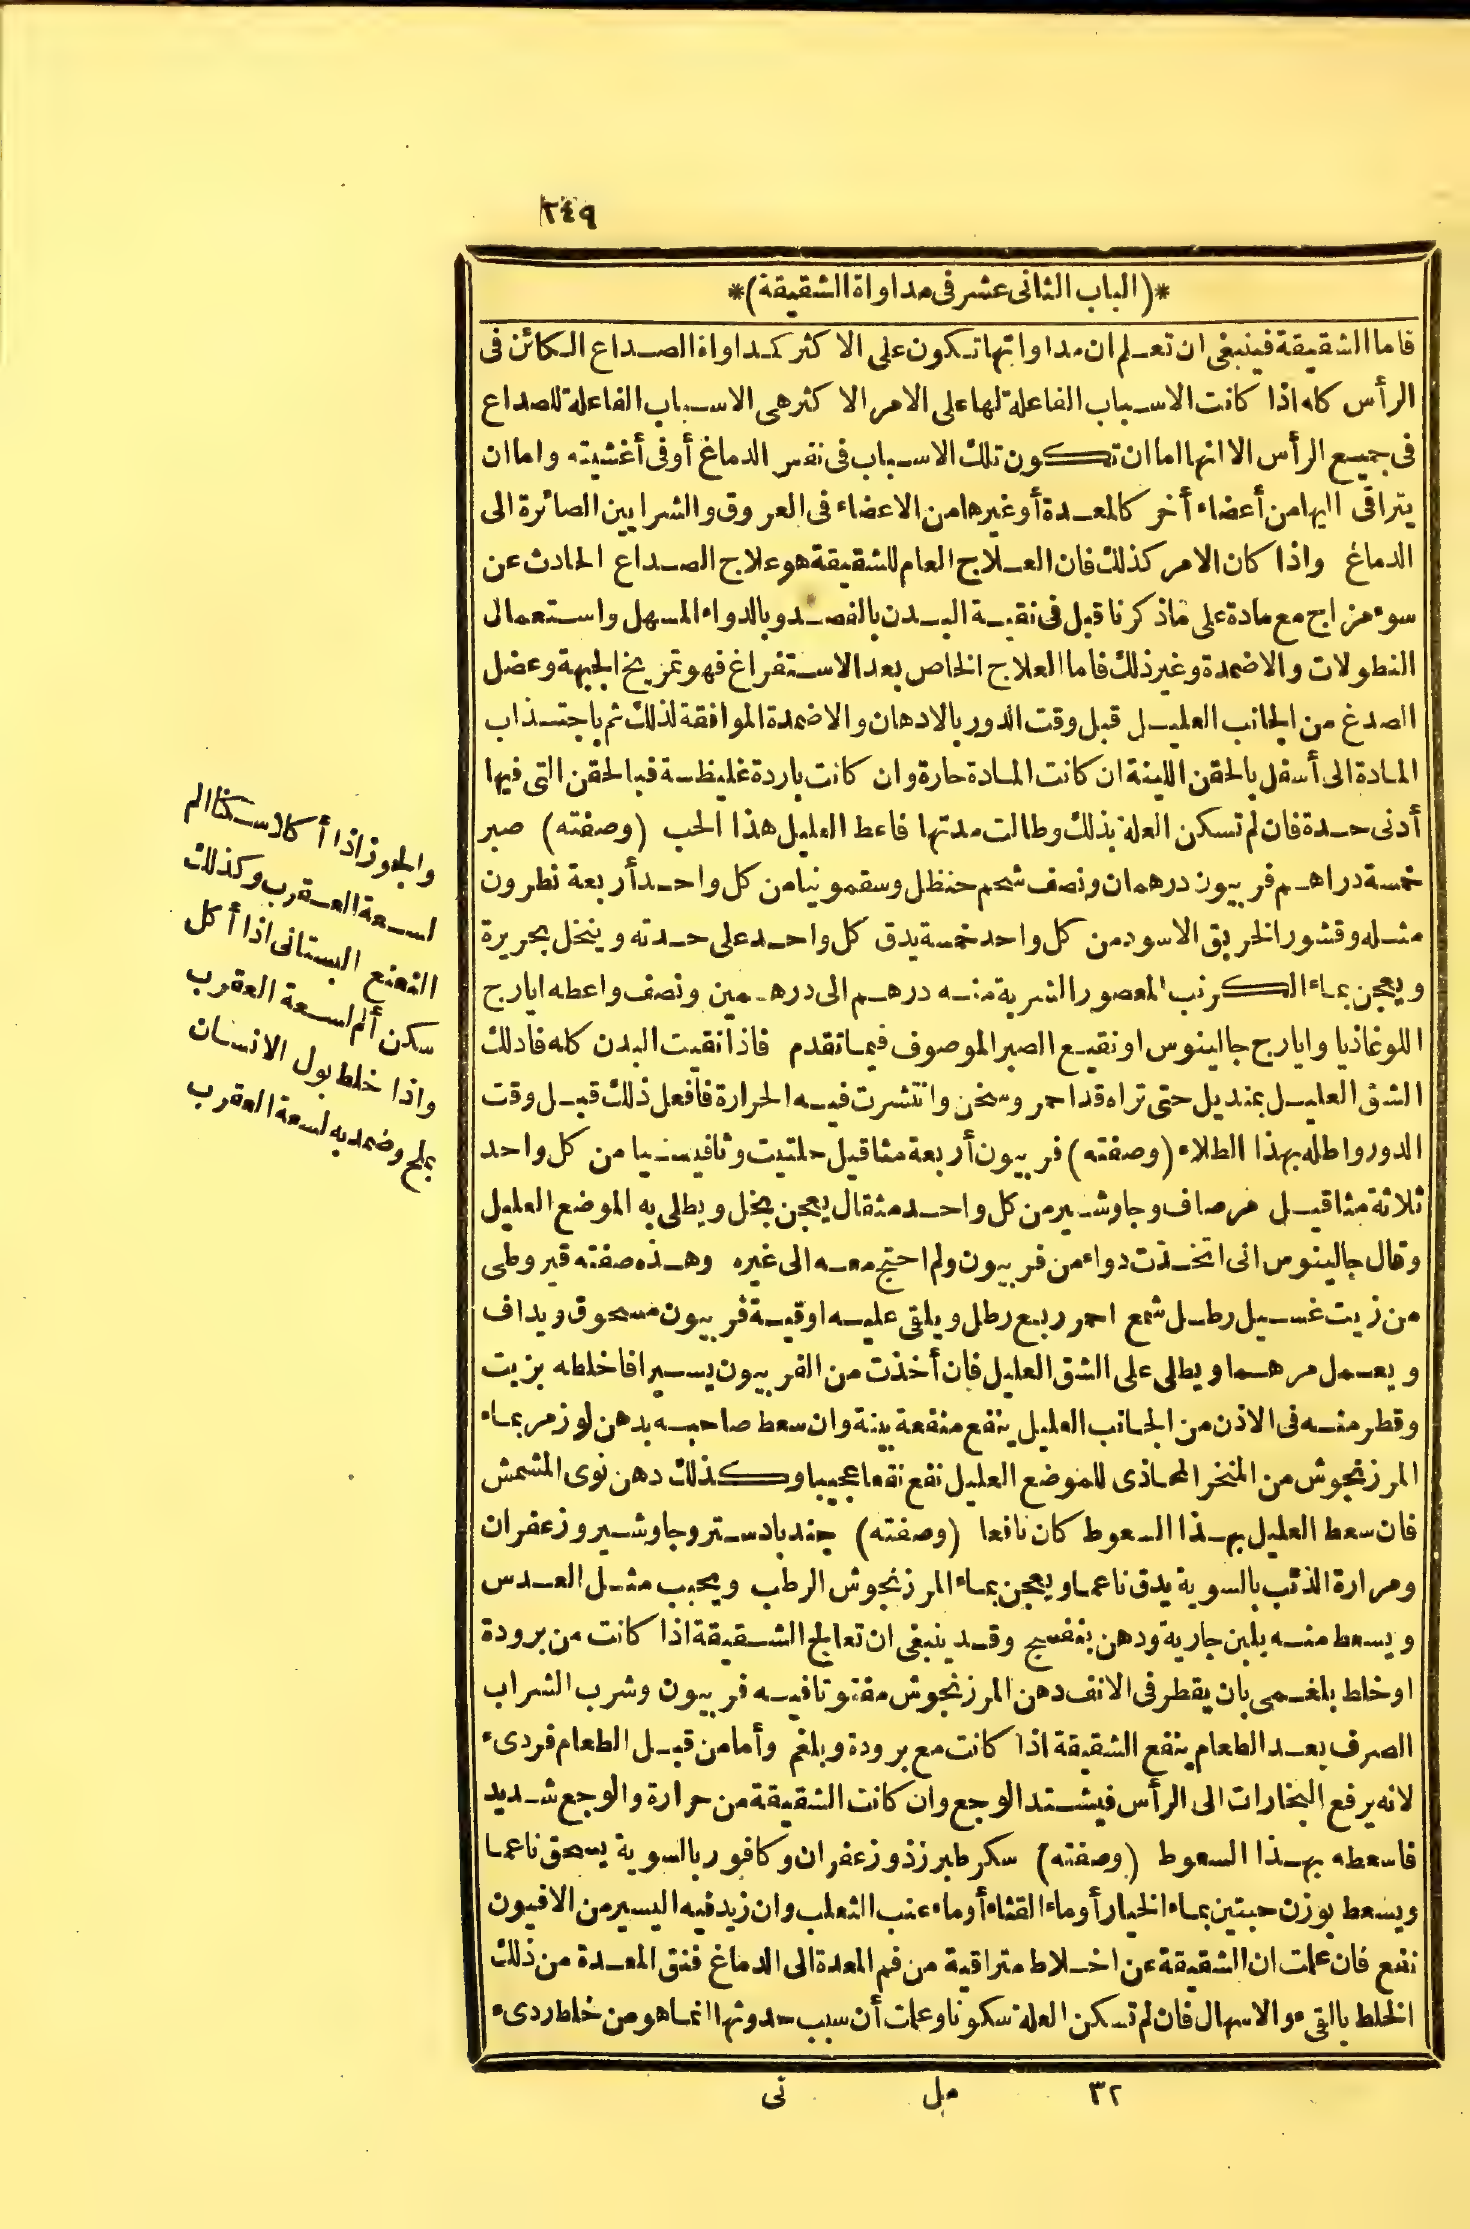 ٢٤٩
*(الباب الثاني عشر في مداواة الشقيقة)*
فاما الشقيقة فينبغي ان تعلم ان مداواتها تكون على الاكثر كمداواة الصداع الكائن في
الرأس كله اذا كانت الاسباب الفاعلة لها على الامر الاكثر هي الاسباب الفاعلة للصداع
في جميع الرأس الا انها اما ان تكون تلك الاسباب في نفس الدماغ أو في أغشيته واما ان
يتراقى اليها من أعضاء أخر كالمعدة أو غيرها من الاعضاء في العروق والشرايين الصائرة الى
الدماغ واذا كان الامر كذلك فان العلاج العام للشقيقة هو علاج الصداع الحادث عن
سوء مزاج مع مادة على ماذكرنا قبل في نقية البدن بالفصد وبالدواء المسهل واستعمال
النطولات والاضمدة وغير ذلك فاما العلاج الخاص بعد الاستفراغ فهو تمريخ الجبهة وعضل
الصدغ من الجانب العليل قبل وقت الدور بالادهان والاضمدة الموافقة لذلك ثم باجتذاب
المادة الى أسفل بالحقن اللينة ان كانت المادة حارة وان كانت باردة غليظة فبالحقن التي فيها
أدنى حدة فان لم تسكن العلة بذلك وطالت مدتها فاعط العليل هذا الحب (وصفته) صبر
خمسة دراهم فربيون درهمان ونصف شحم حنظل وسقمونيا من كل واحد أربعة نطرون
مثله وقشور الخربق الاسود من كل واحد خمسة يدق كل واحد على حدته وينخل بحريرة
ويعجن بماء الكرنب المعصور الشربة منه درهم الى درهمين ونصف واعطه ايارج
اللوغاذيا وايارج جالينوس او نقيع الصبر الموصوف فيما تقدم فاذا نقيت البدن كله فادلك
الشق العليل بمنديل حتى تراه قد احمر وسخن وانتشرت فيه الحرارة فافعل ذلك قبل وقت
الدور واطله بهذا الطلاء (وصفته) فربيون أربعة مثاقيل حلتيت وثافيسيا من كل واحد
ثلاثة مثاقيل مر صاف وجاوشير من كل واحد مثقال يعجن بخل ويطلى به الموضع العليل
وقال جالينوس اني اتخذت دواء من فربيون ولم احتج معه الى غيره وهذه صفته قيروطي
من زيت غسيل رطل شمع احمر ربع رطل ويلقى عليه اوقية فربيون مسحوق ويداف
ويعمل مرهما ويطلى على الشق العليل فان أخذت من الفربيون يسيرا فاخلطه بزيت
وقطر منه في الاذن من الجانب العليل ينفع منفعة بينة وان سعط صاحبه بدهن لوز مر بماء
المرزنجوش من المنخر المحاذي للموضع العليل نفع نفعا عجيبا وكذلك دهن نوى المشمش
فان سعط العليل بهذا السعوط كان نافعا (وصفته) جندبادستر وجاوشير وزعفران
ومرارة الذئب بالسوية يدق ناعما ويعجن بماء المرزنجوش الرطب ويحبب مثل العدس
ويسعط منه بلبن جارية ودهن بنفسج وقد ينبغي ان تعالج الشقيقة اذا كانت من برودة
اوخلط بلغمي بان يقطر في الانف دهن المرزنجوش مفتوتا فيه فربيون وشرب الشراب
الصرف بعد الطعام ينفع الشقيقة اذا كانت مع برودة وبلغم وأما من قبل الطعام فردىء
لانه يرفع البخارات الى الرأس فيشتد الوجع وان كانت الشقيقة من حرارة والوجع شديد
فاسعطه بهذا السعوط (وصفته) سكر طبرزذ وزعفران وكافور بالسوية يسحق ناعما
ويسعط بوزن حبتين بماء الخيار أو ماء القثاء أو ماء عنب الثعلب وان زيد فيه اليسير من الافيون
نفع فان علمت ان الشقيقة عن اخلاط متراقية من فم المعدة الى الدماغ فنق المعدة من ذلك
الخلط بالقىء والاسهال فان لم تسكن العلة سكونا وعلمت أن سبب حدوثها انما هو من خلط ردىء
٣٢ مل نى
والجوز اذا أكلا سكنا الم
لسعة العقرب وكذلك
النعنع البستاني اذا أكل
سكن ألم لسعة العقرب
واذا خلط بول الانسان
بملح وضمد به لسعة العقرب